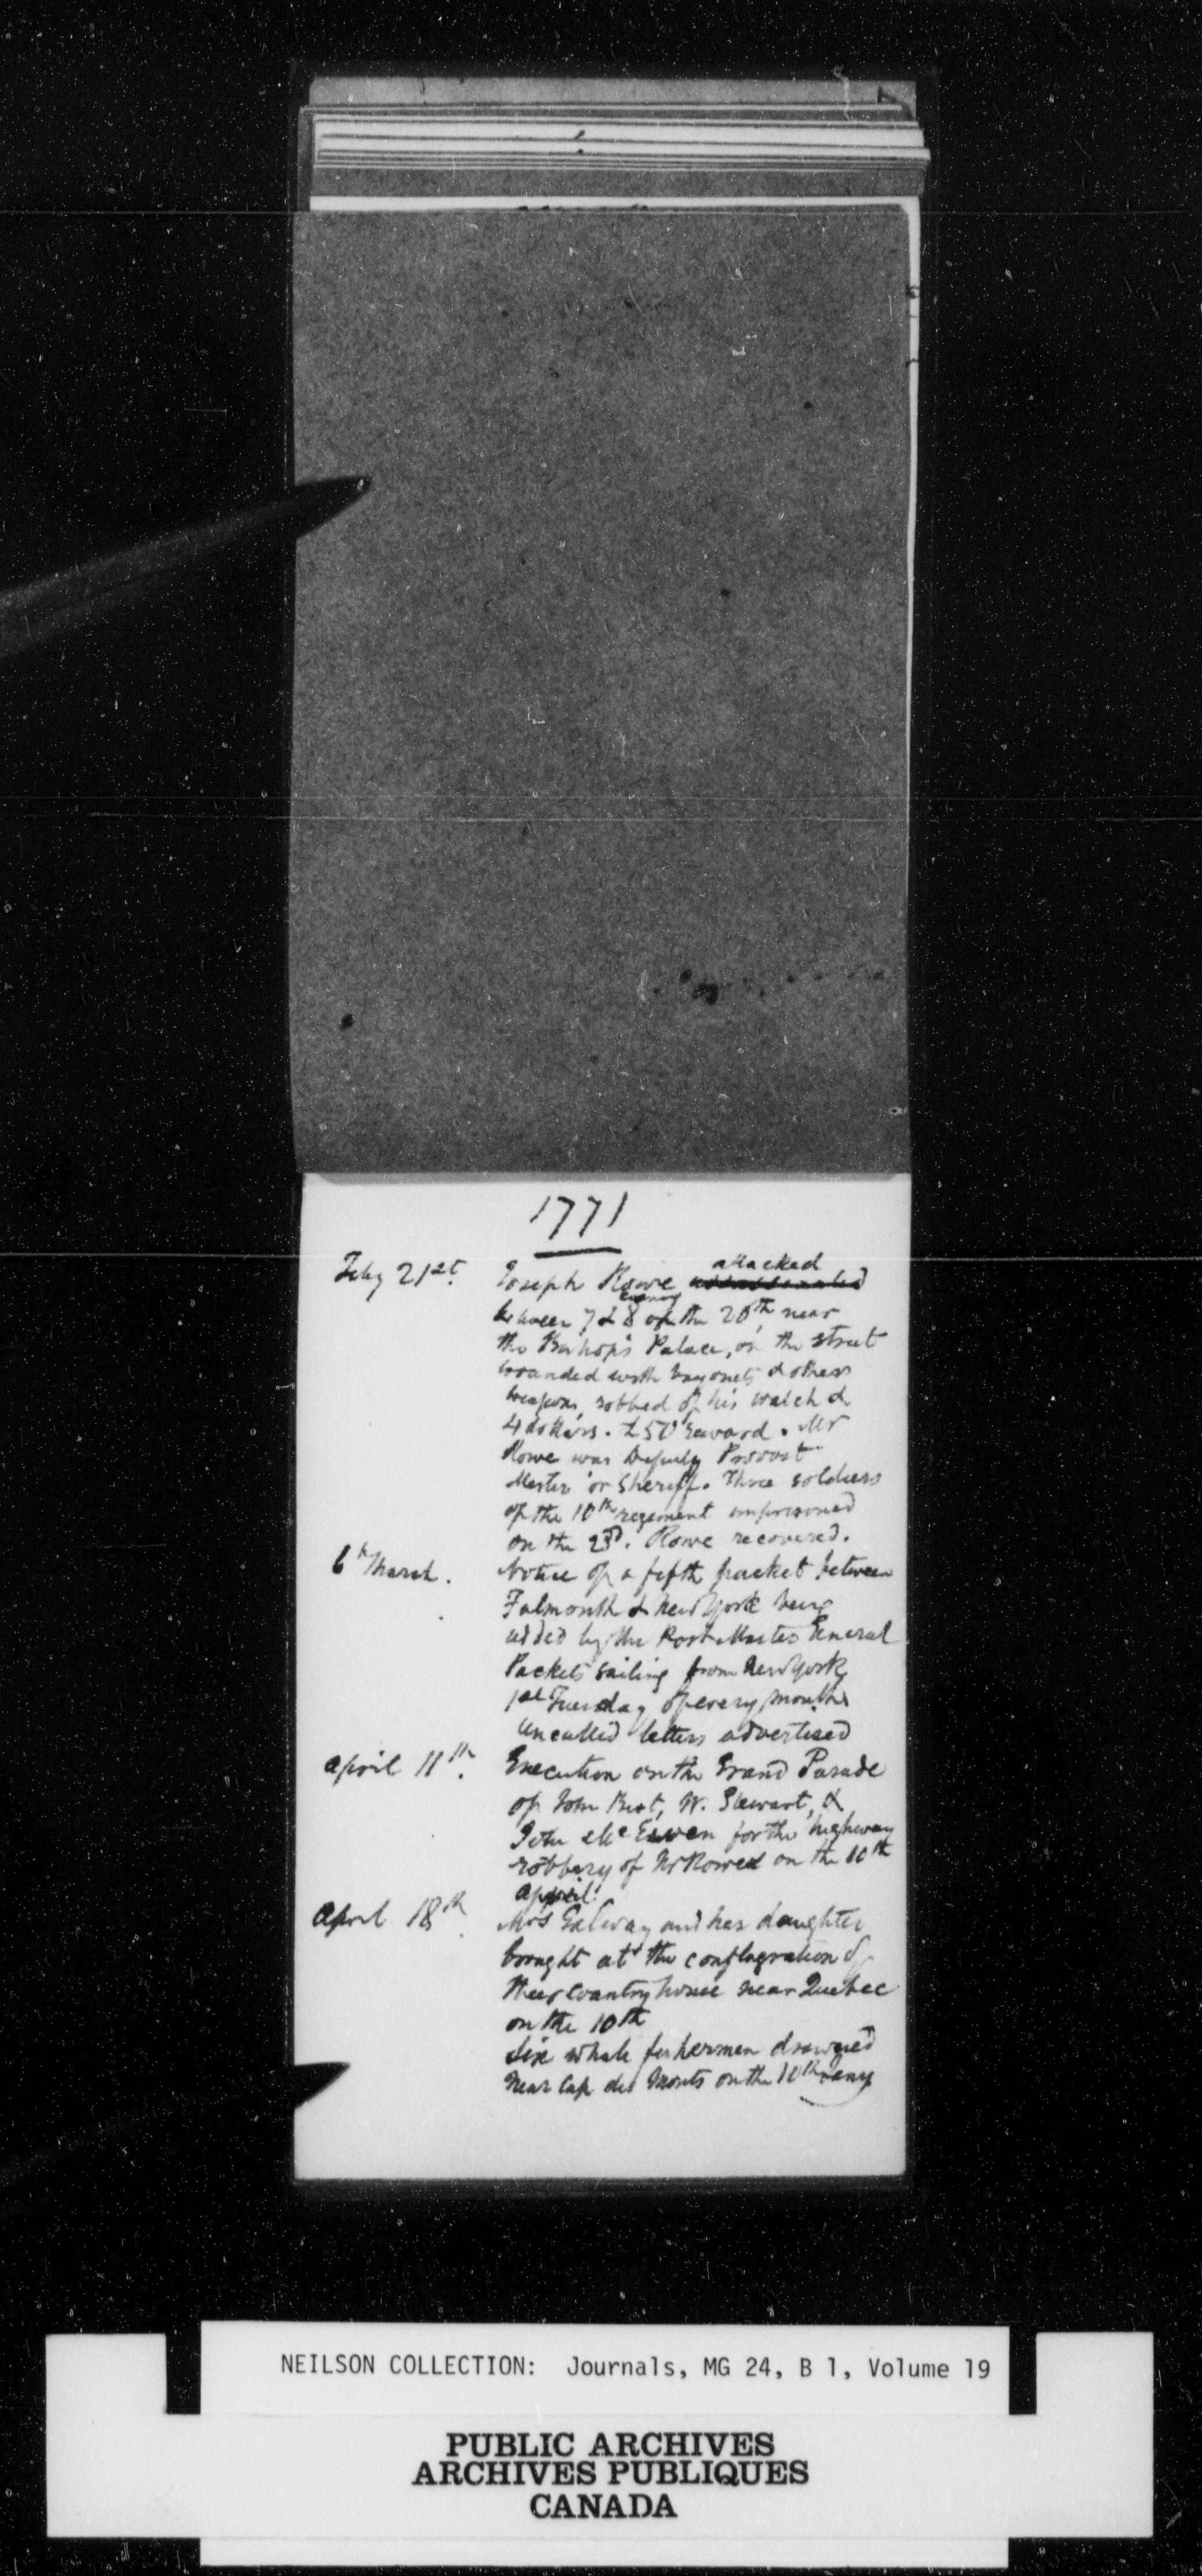 1771
Feby 21st. Joseph Rowe attacked
between 7 & 8 evening on the 20th near
the Bishop's Palace, on the street
wounded with bayonets & other
weapons, robbed of his watch &
4 dollars. £50 reward. Mr
Rowe was Deputy Provost
Master or Sheriff. Three soldiers
of the 10th regement imprisoned
on the 23d. Rowe recovered.
6th March. Notice of a fifth packet between
Falmouth & New York being
added by the Post Master General
Packets sailing from New York
1st Tuesday of every month
uncalled letters advertised
April 11th. Execution on the Grand Parade
of John Bent, W. Stewart, &
John McEwen for the highway
robbery of Mr Rowe on the 10th
April.
April 18th. Mrs Galway and her daughter
at the conflagration of
their country house near Quebec
on the 10th
Six whale fishermen drowned
near Cap des Monts on the 10th
NEILSON COLLECTION: Journals, MG 24, B 1, Volume 19
PUBLIC ARCHIVES
ARCHIVES PUBLIQUES
CANADA